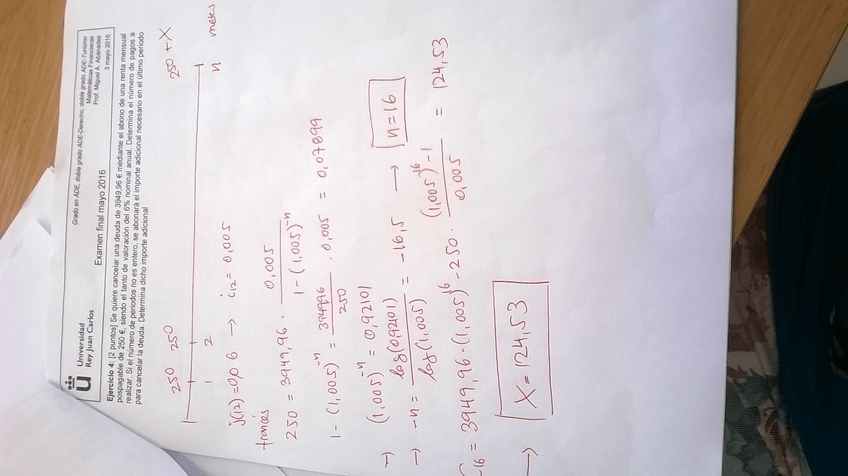 Universidad
Rey Juan Carlos
Grado en ADE, doble grado ADE-Derecho, doble grado ADE-Turismo
Matemáticas Financieras
Prof. Miguel A. Abánades
3 mayo 2016
Examen final mayo 2016
Ejercicio 4: [2 puntos] Se quiere cancelar una deuda de 3949,96 € mediante el abono de una renta mensual
pospagable de 250 €, siendo el tanto de valoración del 6% nominal anual. Determina el número de pagos a
realizar. Si el número de periodos no es entero, se abonará el importe adicional necesario en el último periodo
para cancelar la deuda. Determina dicho importe adicional
250 250 250 + X
1 2 n meses
j(12)=0,06 → i12 = 0,005
francés
250 = 3949,96 · 0,005 / 1 - (1,005)^-n
1 - (1,005)^-n = 3949,96 / 250 · 0,005 = 0,07899
→ (1,005)^-n = 0,92101
→ -n = log(0,92101) / log(1,005) = -16,5 → n=16
C16 = 3949,96·(1,005)^16 - 250 · (1,005)^16 - 1 / 0,005 = 124,53
→ X = 124,53